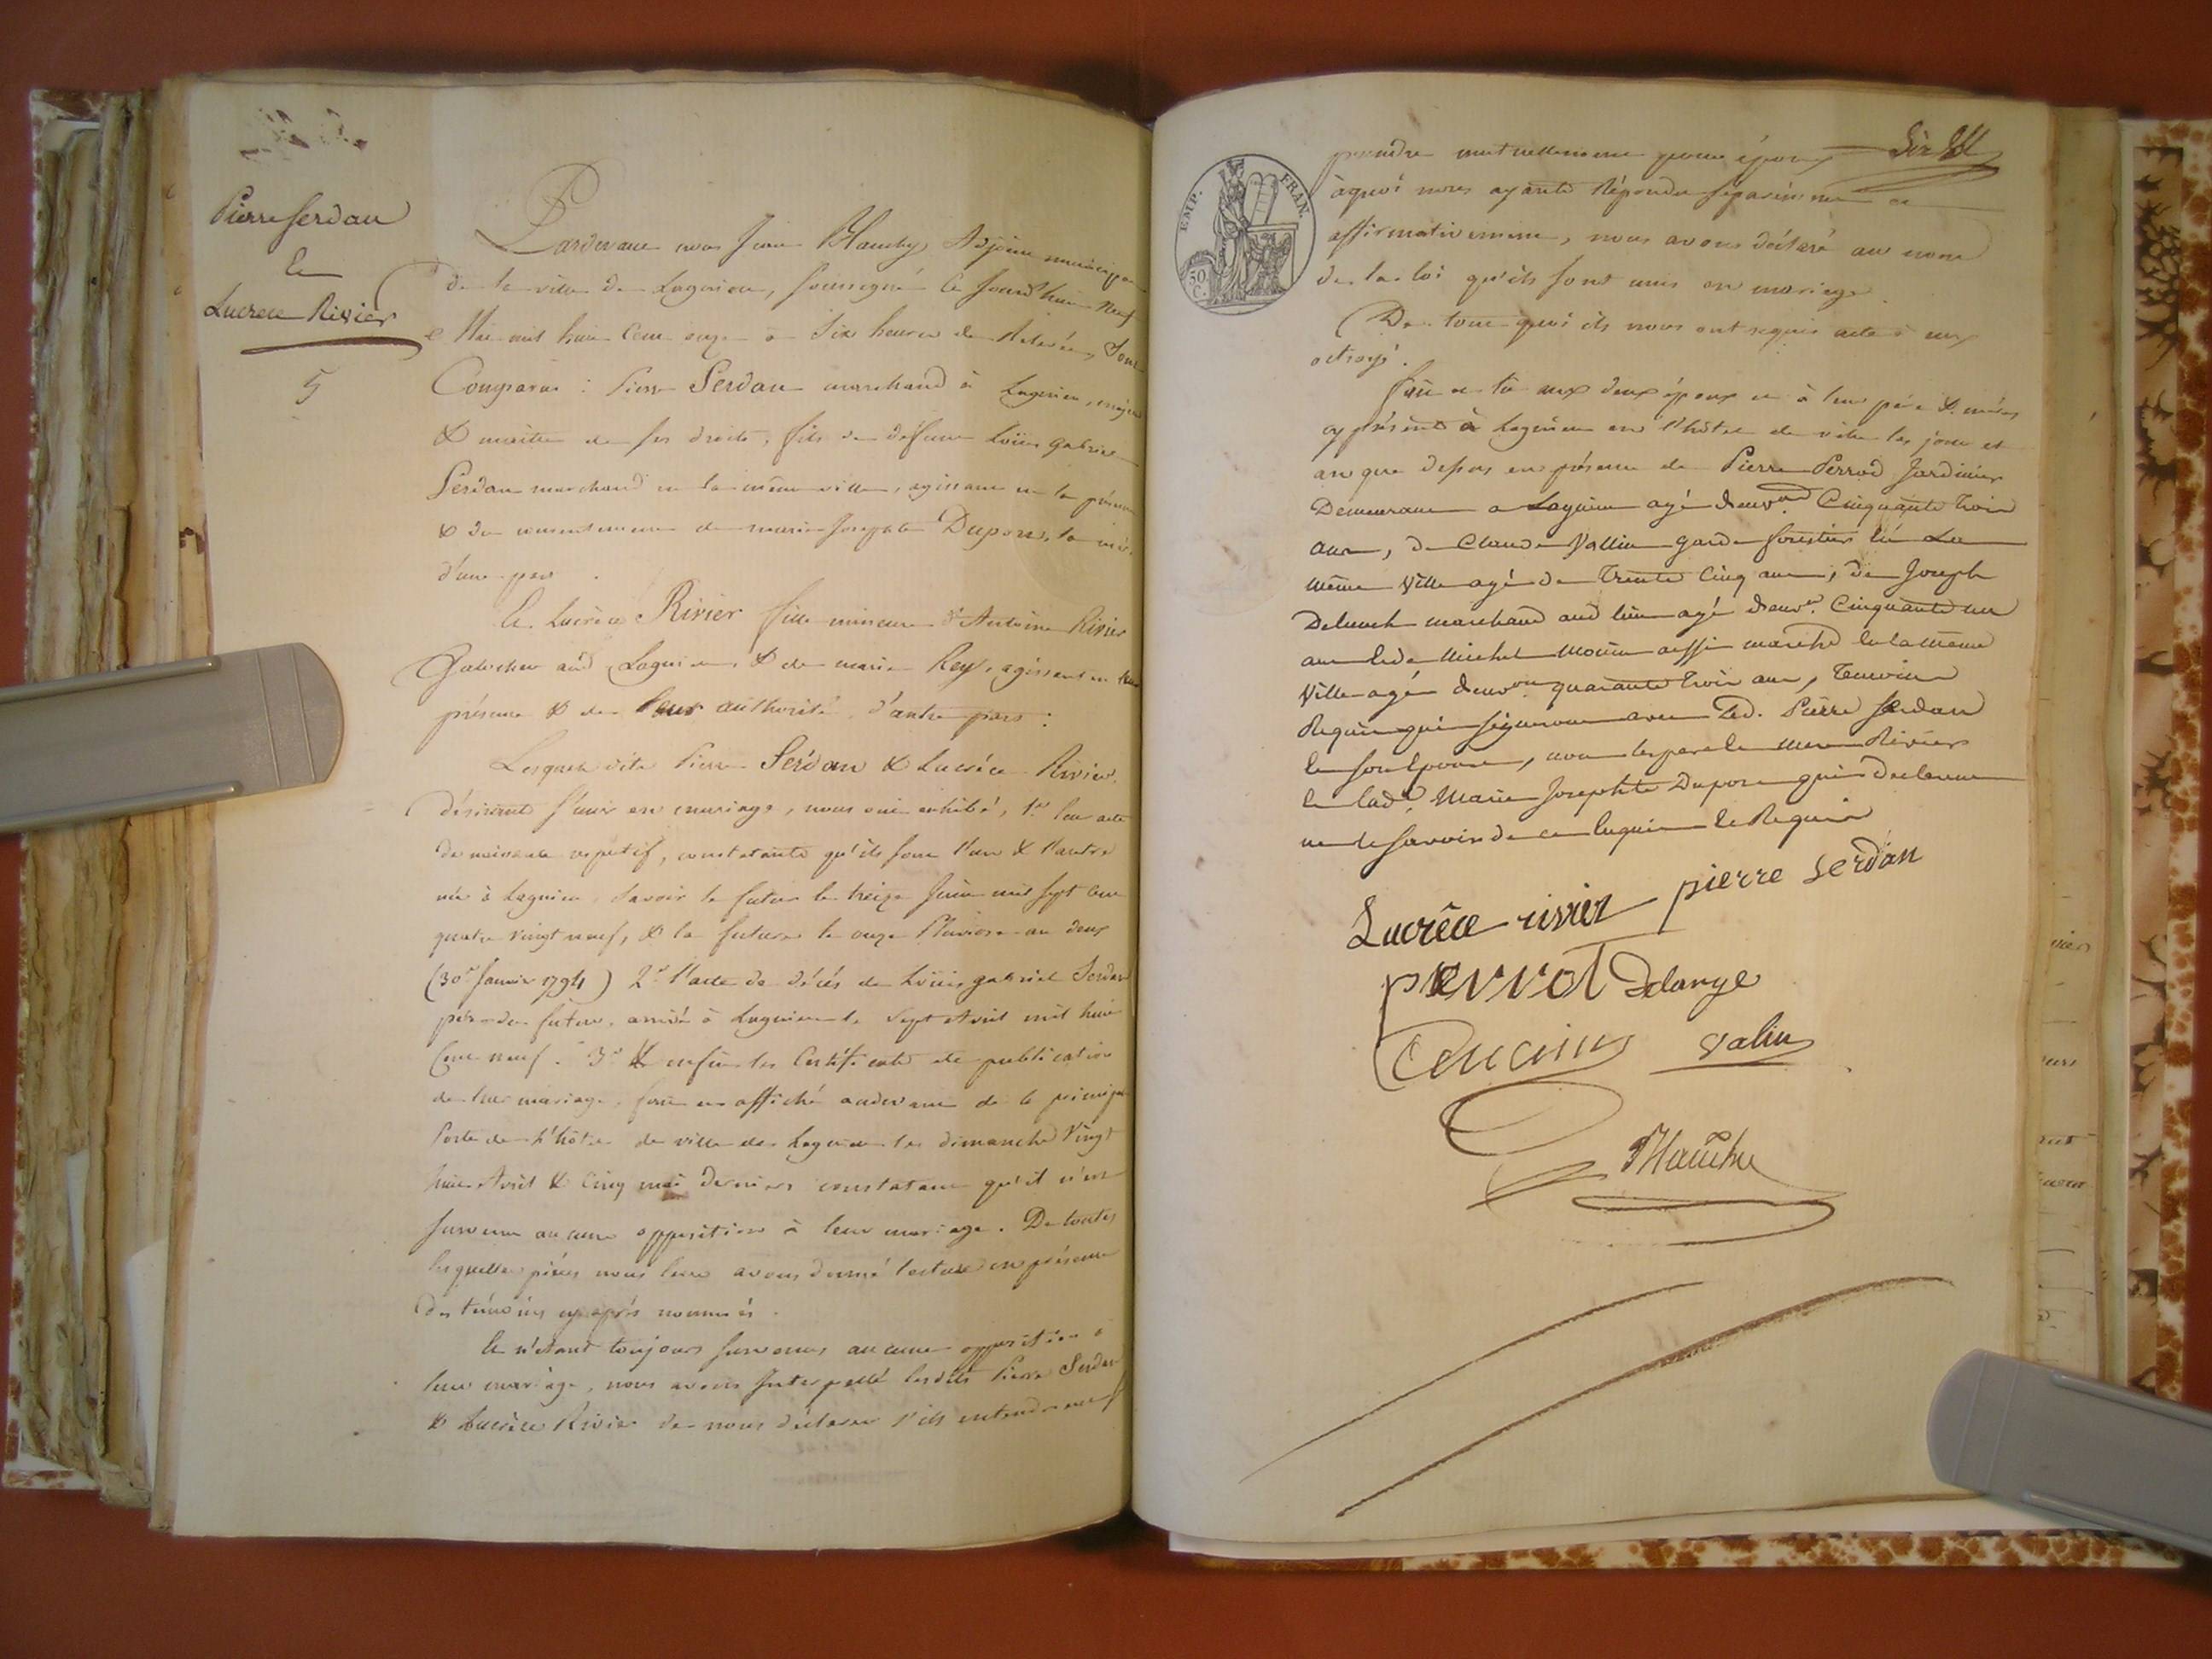 Pierre Serdan
Et
Lucrece Rivier
5
Pardevant nous Jean Adjoint municipal
de la ville de Lagnieu, soussigné ce Jourd'hui neuf
Mai mil huit Cent onze à Six heures de Relevée, Sont
Comparus : Pierre Serdan marchand à Lagnieu, majeur
& maitre de ses droits, fils de défunt Loüis gabriel
Serdan marchand en la même ville, agissant en la présence
& du consentement de marie Josephte Duport, sa mère
d'une part.
Et Lucrèce Rivier fille mineure d'Antoine Rivier
aud. Lagnieu & de marie Rey, agissant en leur
présence & de leur authorité d'autre part :
Lesquels dits Pierre Serdan & Lucrèce Rivier
désirants s'unir en mariage, nous ont exhibé, 1.º leur acte
de naissance respectif, constatants qu'ils sont l'un & l'autre
nés à Lagnieu, Savoir le futur le treize Juin mil sept cent
quatre vingt neuf, & la future le onze Pluviose an deux
(30 Janvier 1794) 2.º l'acte de décés de Loüis gabriel Serdan
père du futur, arrivé à Lagnieu le Sept Avril mil huit
Cent neuf. 3.º & enfin les Certificats de publication
de leur mariage, fait et affiché audevant de la principale
Porte de l'hôtel de ville de Lagnieu les dimanches Vingt
huit Avril & Cinq mai derniers constatant qu'il n'est
survenu aucune opposition à leur mariage. De toutes
lesquelles pièces nous leur avons donné lecture en présence
des témoins cy après nommés.
Et n'étant toujours survenus aucune opposition à
leur mariage, nous avons Interpellé lesdits Pierre Serdan
& Lucrèce Rivier de nous déclarer s'ils entendent
EMP. FRAN.
50 C.
prendre mutuellement pour époux
àquoi nous ayants Répondu séparément et
affirmativement, nous avons déclaré au nom
de la loi qu'ils sont unis en mariage.
De tout quoi ils nous ont requis acte à eux
octroyé.
Fait et lû aux deux époux et à leur père & mères
cy présents à Lagnieu en l'hôtel de ville les jour et
an que dessus en présence de Pierre Perrod Jardinier
Demeurant a Lagnieu agé denv.on Cinquante trois
ans, de Claude Vallin garde forestier en La
même Ville agé de Trente Cinq ans, de Joseph
marchand aud lieu agé denv.on Cinquante un
ans et de Michel aussi marchd en la même
Ville agé denv.on quarante trois ans, Temoins
Requis qui signeront avec Led. Pierre Serdan
et son Epouse, non les pere et mere Rivier
et lad.e Marie Josephte Duport qui declarent
ne le savoir de ce Enquis et Requis
Lucrêce rivier pierre serdan
perrot Delange
valin